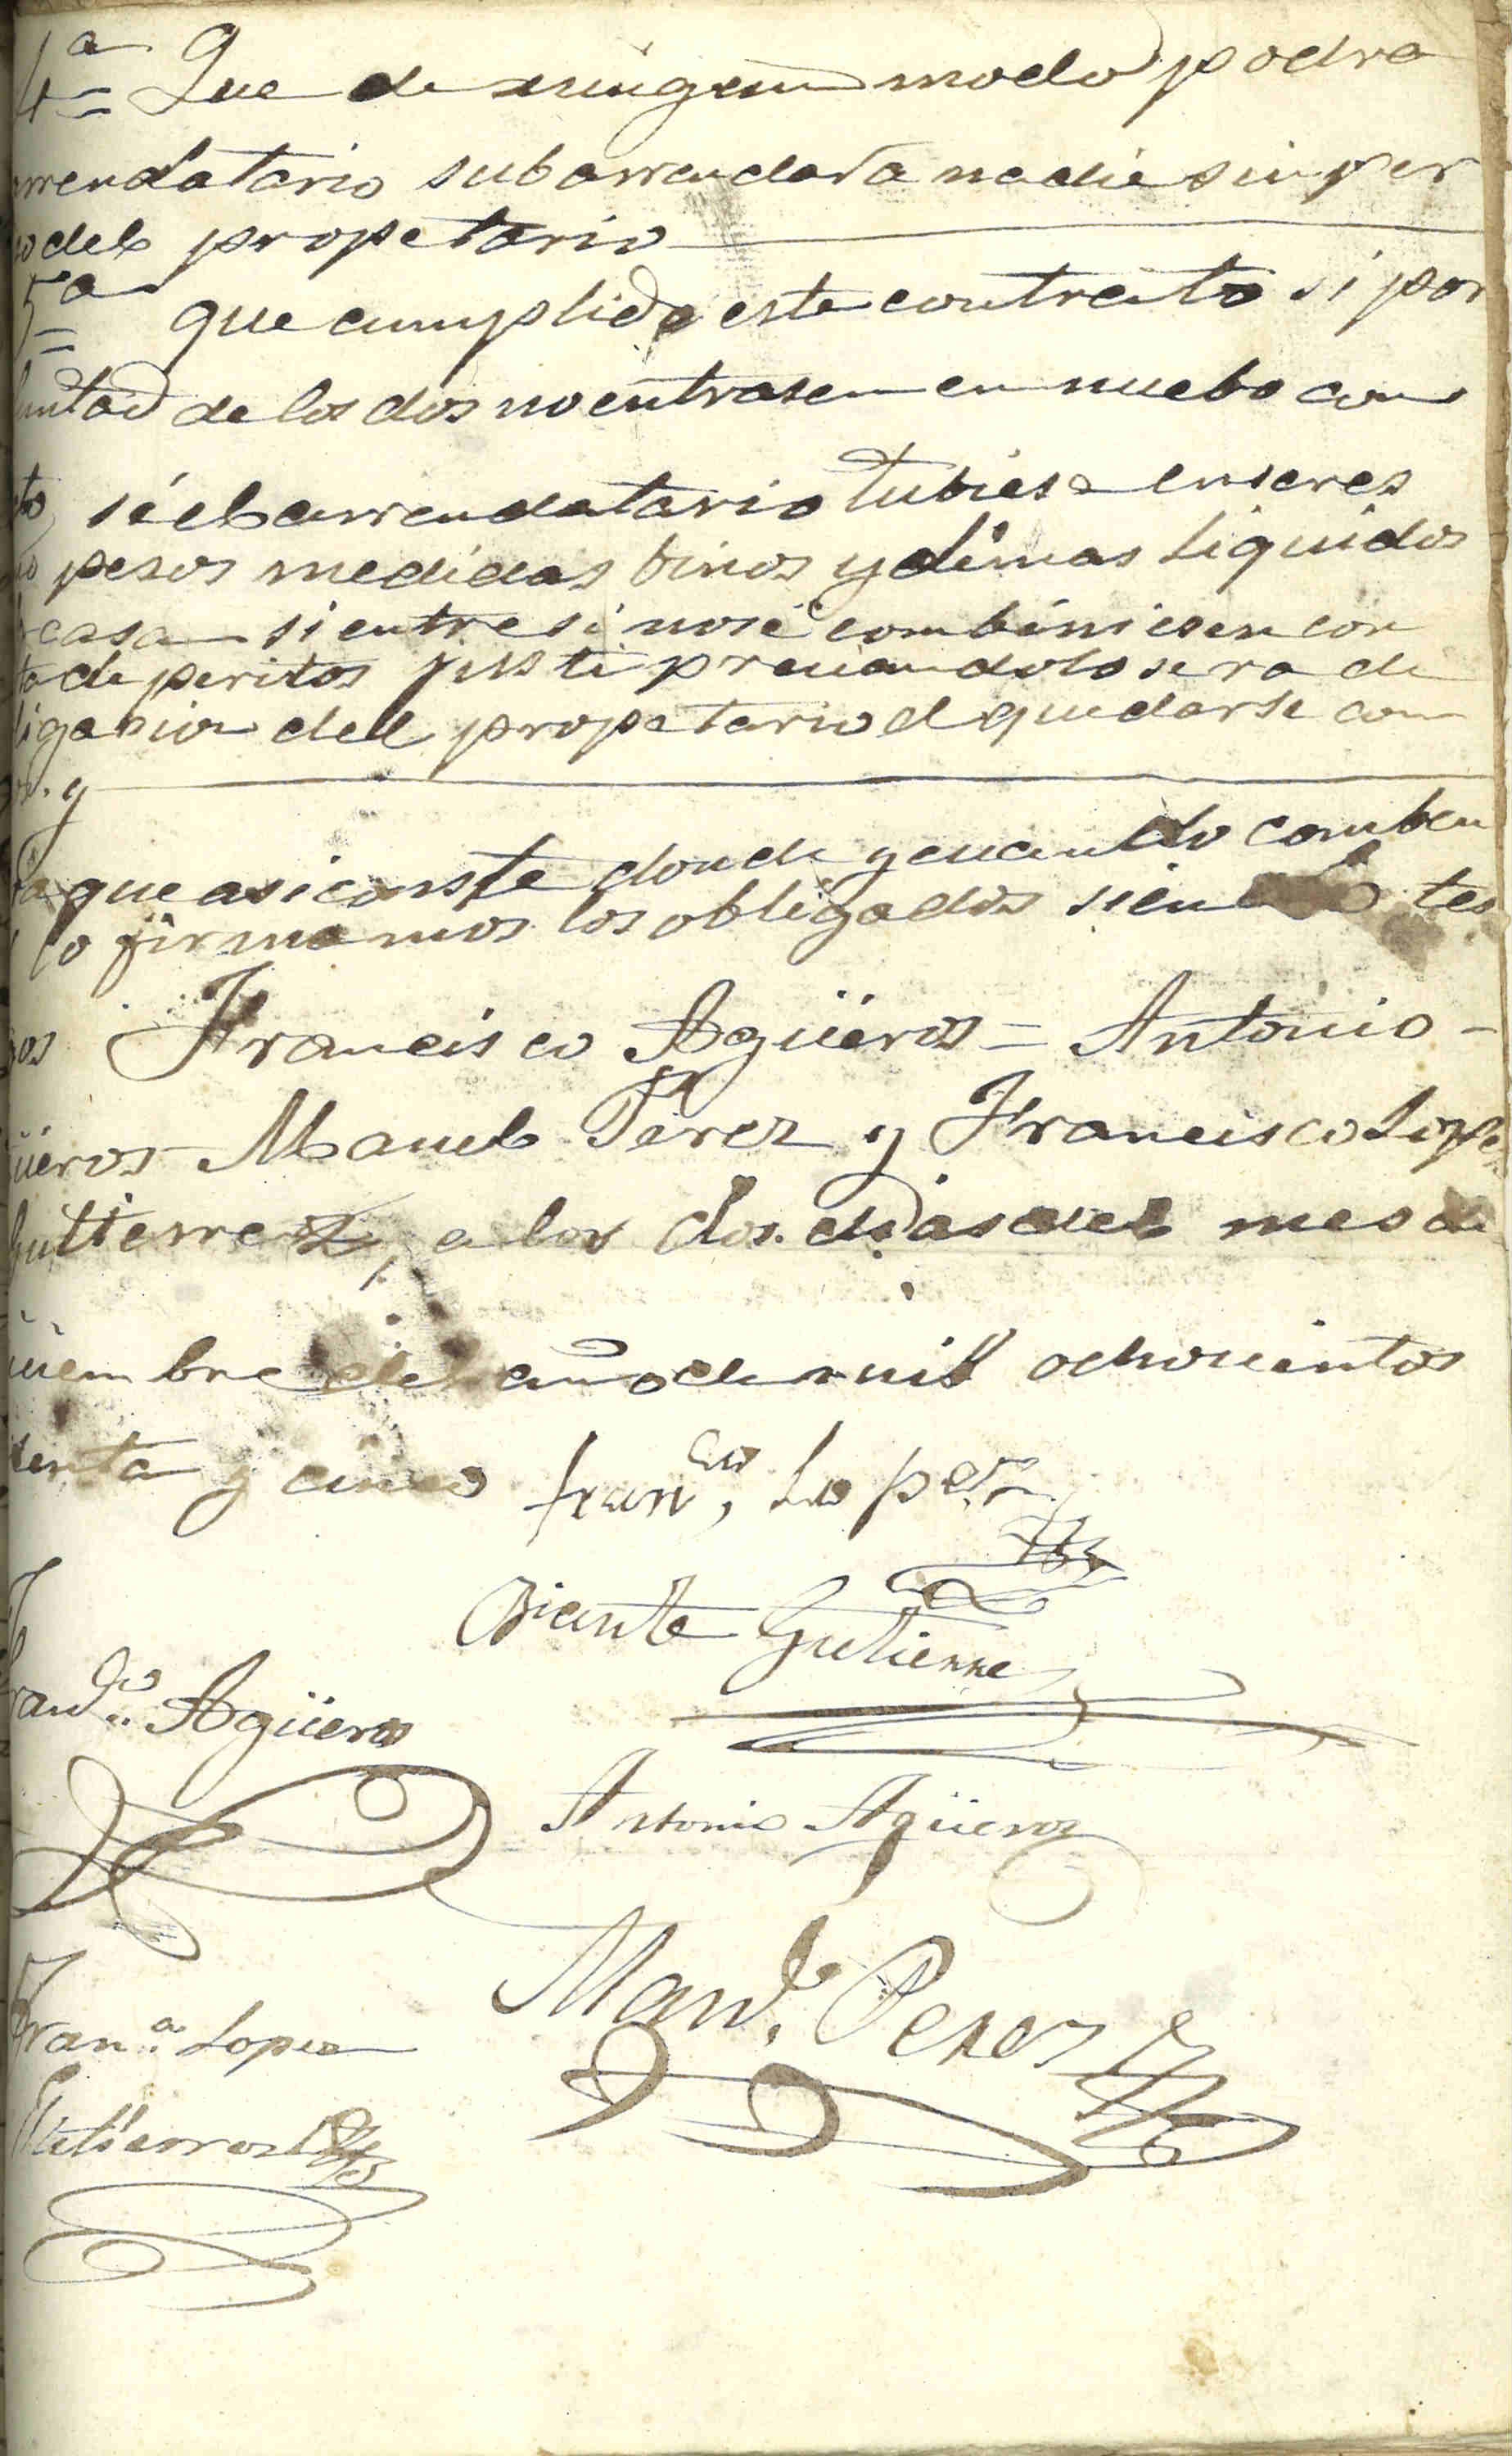 4ª Que de ningun modo podra
rrendatario subarrendar a nadie sin per
o del propetario
5ª que cumplido este contrato si por
luntad de los dos no entrasen en nuebo con
to, si el arrendatario tubiese enseres
pesos medidas binos y demas liquidos
casa si entre si no se combiniesen con
ta de peritos justipreciandolo sera de
ligacion del propetario el quedarse con
y
que asi conste donde y cuando comben
lo firmamos los obligados siendo tes
gos Francisco Agüeros = Antonio -
üeros Manuel Perez y Francisco Lope
Gutierrez, a los dos dias del mes de
iembre del año de mil ochocientos
enta y cinco Fran.co, Lopez
Bicente Gutierre
Fran.co Agüeros
Antonio Agüeros
Man.l Perez
Fran.co Lopez
Gutierrez